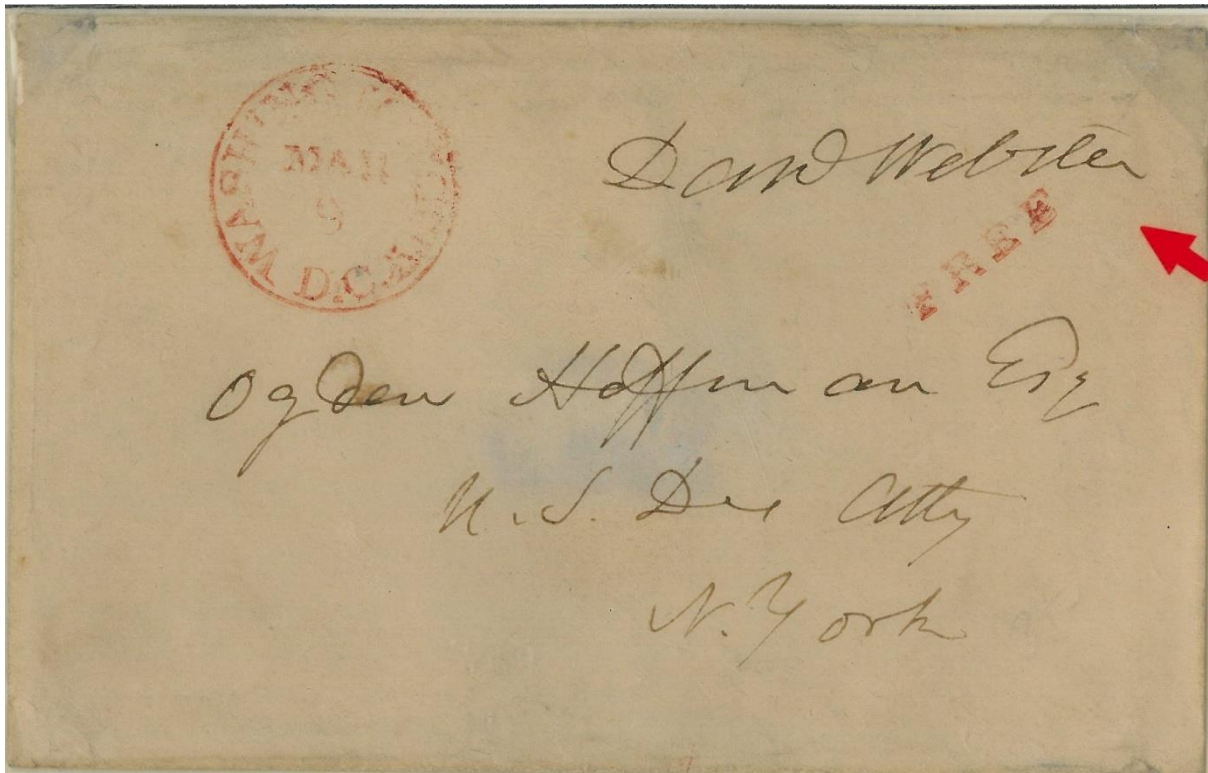 WASHINGTON CITY D.C.
MAR
9
Danl Webster
FREE
Ogden Hoffman Esq
U.S. Dis Atty
N. York